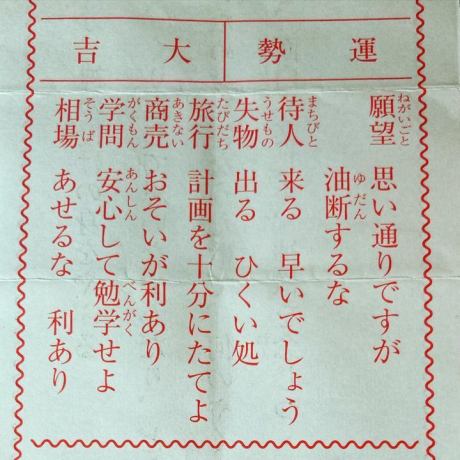 運勢 大吉
願望 思い通りですが
油断するな
待人 来る 早いでしょう
失物 出る ひくい処
旅行 計画を十分にたてよ
商売 おそいが利あり
学問 安心して勉学せよ
相場 あせるな 利あり
ねがいごと
ゆだん
まちびと
うせもの
たびだち
あきない
がくもん
あんしん
べんがく
そうば